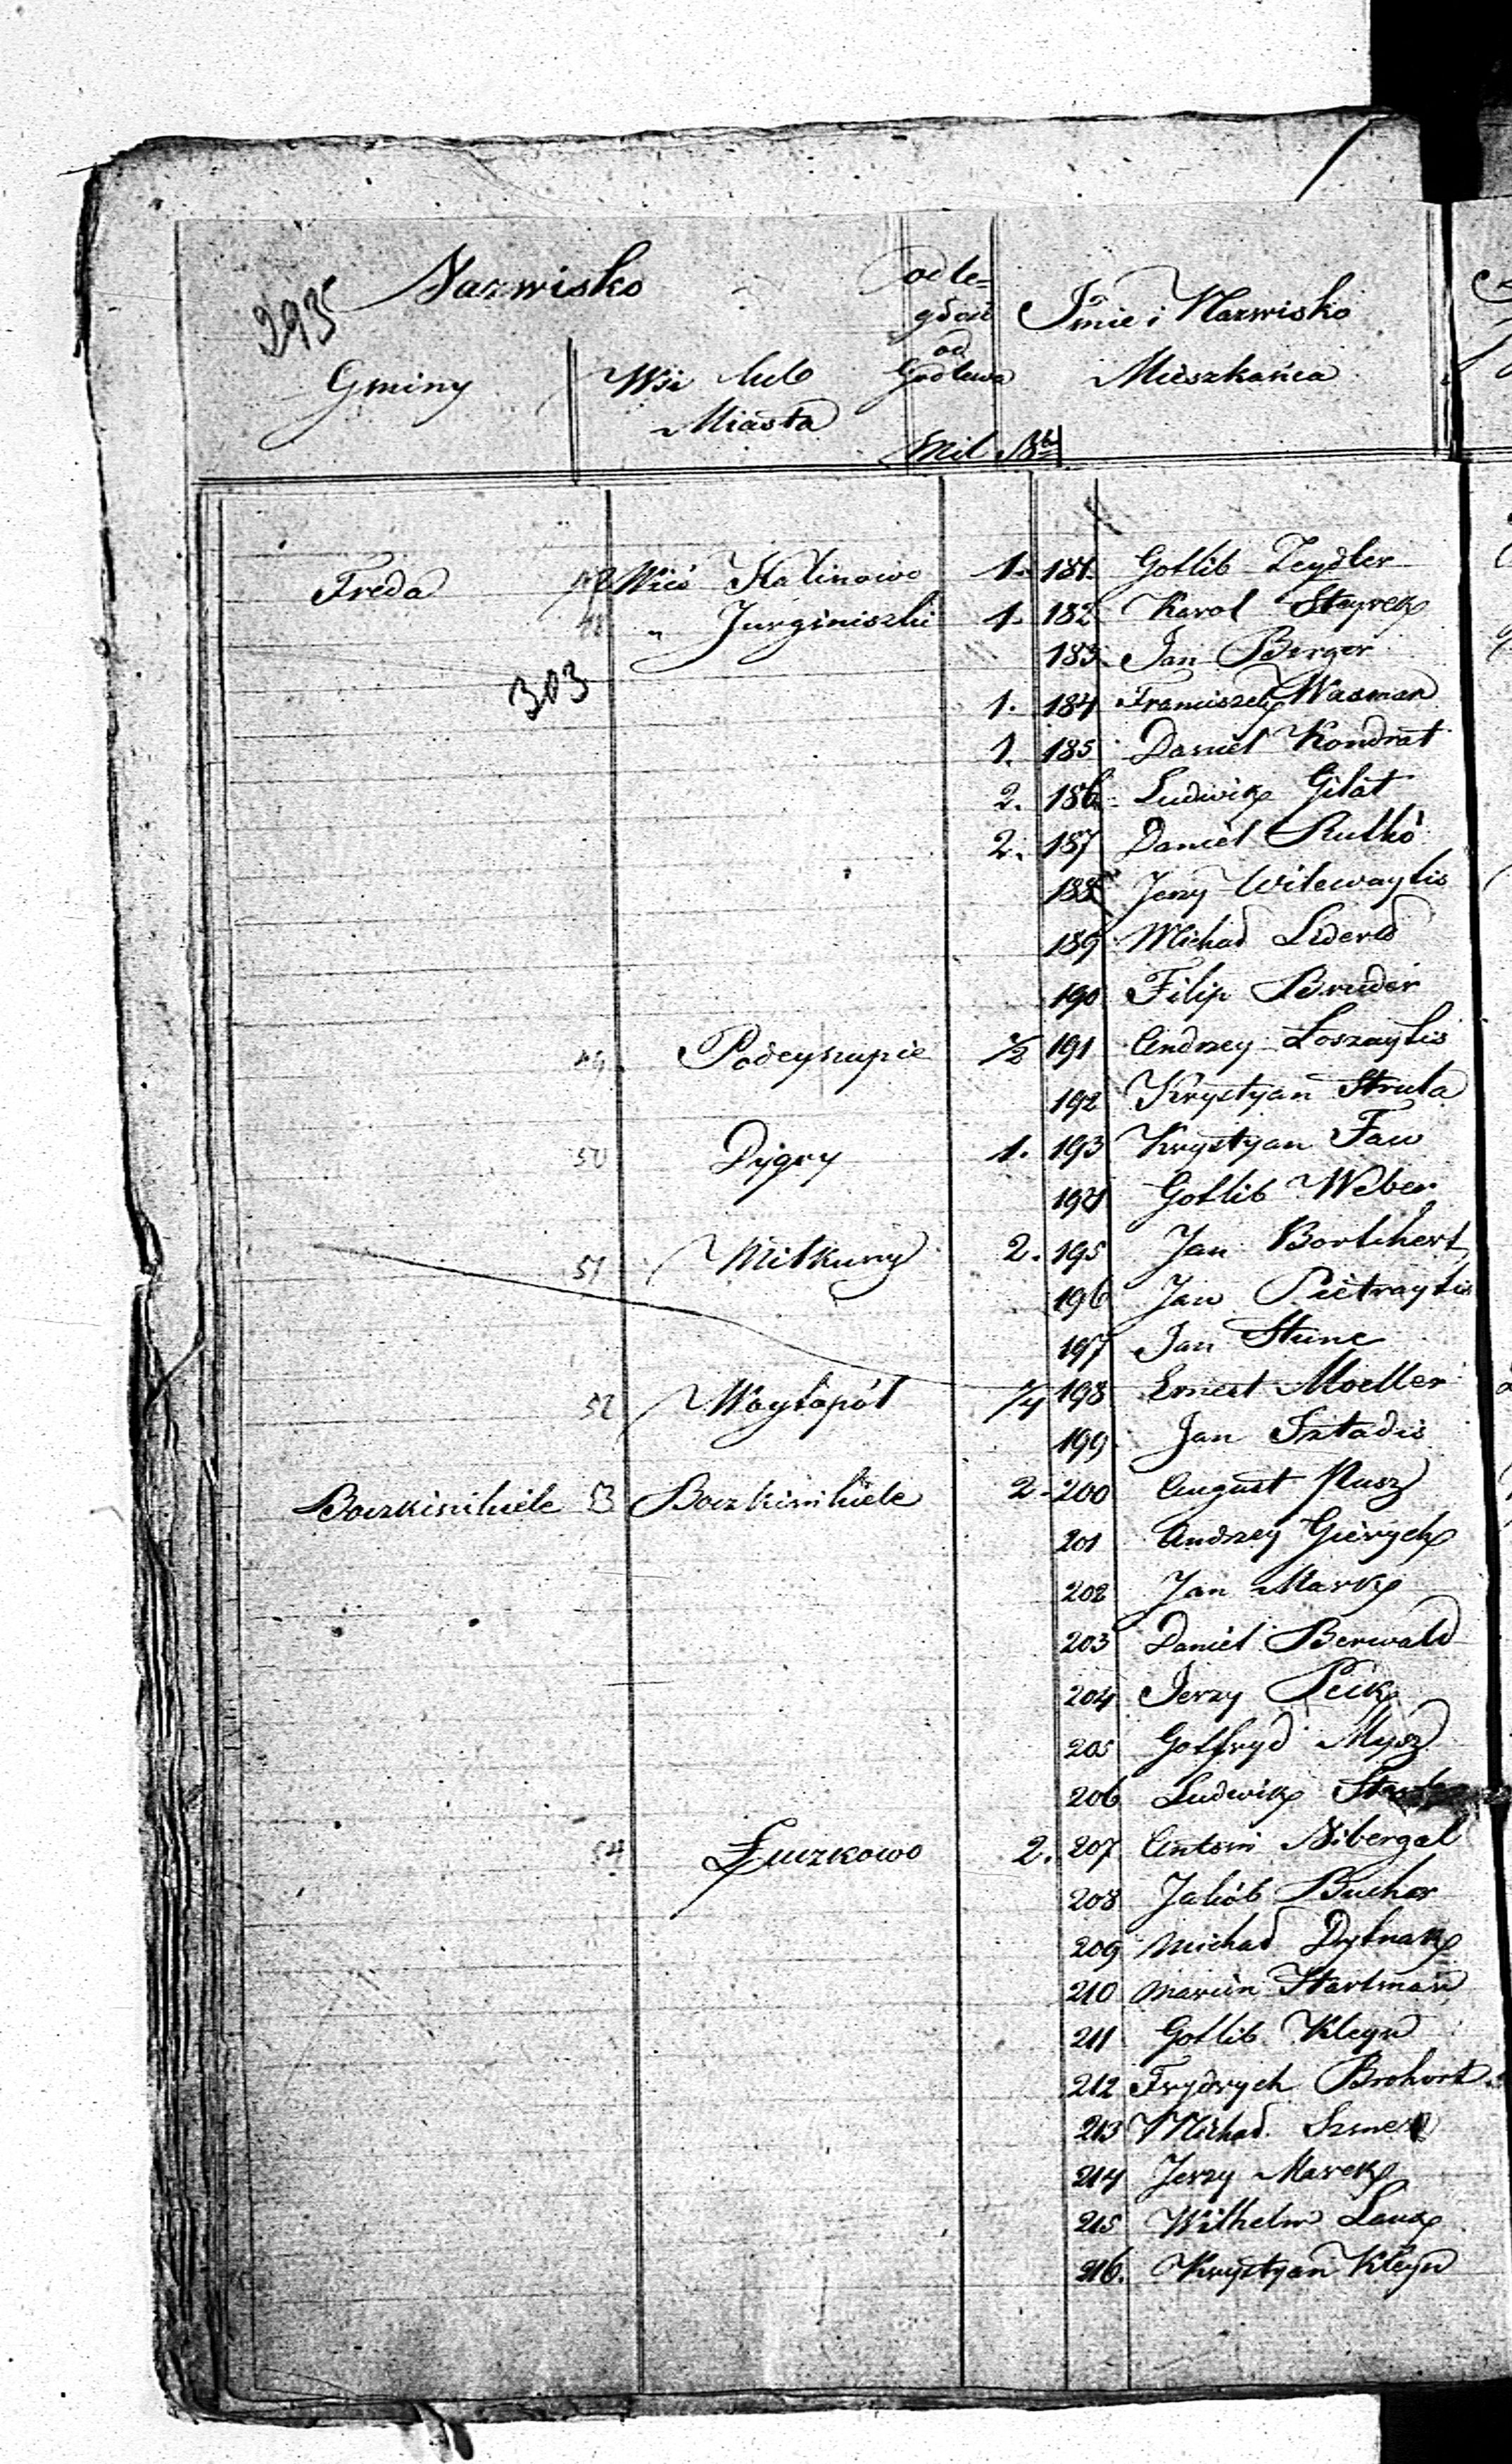 293
Nazwisko
odle-
głość
od
Godlewa
Imie i Nazwisko
Mieszkańca
Gminy
Wsi lub
Miasta
Mil No
Freda Wieś Kalinowo 1. 181. Gotlib Zeydler
48 " Jurginiszki 1. 182 Karol Styrek
183 Jan Berger
303
1. 184 Franciszek Wasman
1. 185 Daniel Kondrat
2. 186 Ludwik Gilat
2. 187 Daniel Rutkó
188 Jerzy Wilewaytis
189 Michał
190 Filip Bruder
49 1/2 191 Andrzey Łoszaytis
192 Krystyan Strula
50 Dygry 1. 193 Krystyan Fau
194 Gotlib Weber
51 Mitkuny 2. 195 Jan Bortchert
196 Jan Pietraytis
197 Jan Stunc
52 Waytopól 1/4 198 Ernest Moeller
199 Jan
53 2. 200 August Rusz
201 Andrzey Gierych
202 Jan Mark
203 Daniel Berwald
204 Jerzy Peik
205 Gotfryd Mysz
206 Ludwik
54 Łuczkowo 2. 207 Antoni Nibergal
208 Jakób Bucher
209 Michał Dytnak
210 Marcin Hartman
211 Gotlib Kleyn
212 Frydrych Brohort
213 Michał
214 Jerzy Marek
215 Wilhelm Lauk
216. Krystyan Kleyn